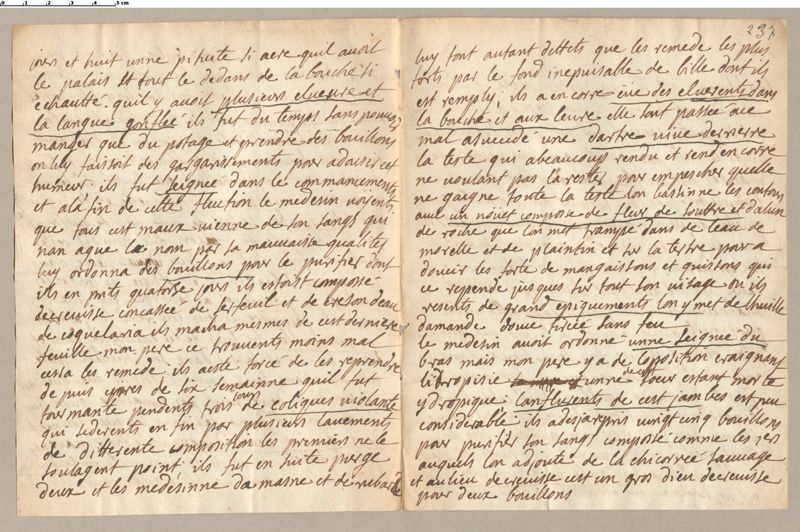 0 1 2 3 4 5 cm
237
jours et huit unne pituite si acre quil avoit
le palais et tout le dedans de la bouche si
echauffé quil y avoit plusieurs elevure et
la langue gonflée ils fut du temps sans pouvoir
manger que du potage et prendre des bouillons
on luy faisoit des gargarisements pour adousir cet
humeur ils fut seignée dans le commancement
et ala fin de cette fluction le medesin voyent
que tous cest maux vienne de son sang qui
nan aque la nom par sa mauvaise qualités
luy ordonna des bouillons pour le purifier dont
ils en prits quatorse jours ils estoist compossé
decrevisse concassée de serfeuil et de creson deau
de coquelaria ils macha mesmes de cest derniere
feuille mon pere ce trouvents moins mal
cessa les remede ils aesté forcé de les reprendre
de puis cypres de six semainne quil fut
tourmante pendents trois jours de coliques violante
qui sederents en fin par plusieurs lavements
de differente composition les premiers ne le
soulagent point ils fut en suite purge
deux et les medesinne da masne et de rubarbe
luy font autant deffets que les remede les plus
forts par le fond inepuisable de bille dont ils
est remply, ils a encorre eue des elverents dans
la bouche et aux levre elle sont passée ace
mal asucedé une dartre vive derrierre
la teste qui abeaucoups rendu et rend encorre
ne voulant pas la rester pour empescher quelle
ne gaigne toute la teste lon bassinne les contours
avec un nouet compose de fleur de souffre et dalun
de roche que lon met trampé dans de leau de
morelle et de plaintin et sur la tertre pour a
doucir les sorte de mangaisons et quisons qui
ce respende jusques sur tout son visage ou ils
resents de grand epiquements lon y met de lhuille
damande douce tirée sans feu
le medesin avoit ordonné unne seignée du
bras mais mon pere y a de loposition craignant
lidropisie unne de ces soeur estant morte
ydropique lanflurents de cest jambes est peu
considerable ils adesjarepris vingt cinq bouillons
pour purifier son sang composse comme les 1ers
auquels lon adjoute de la chicorrée sauvage
et au lieu decrevisse cest un gros dieu decrevisse
pour deux bouillons